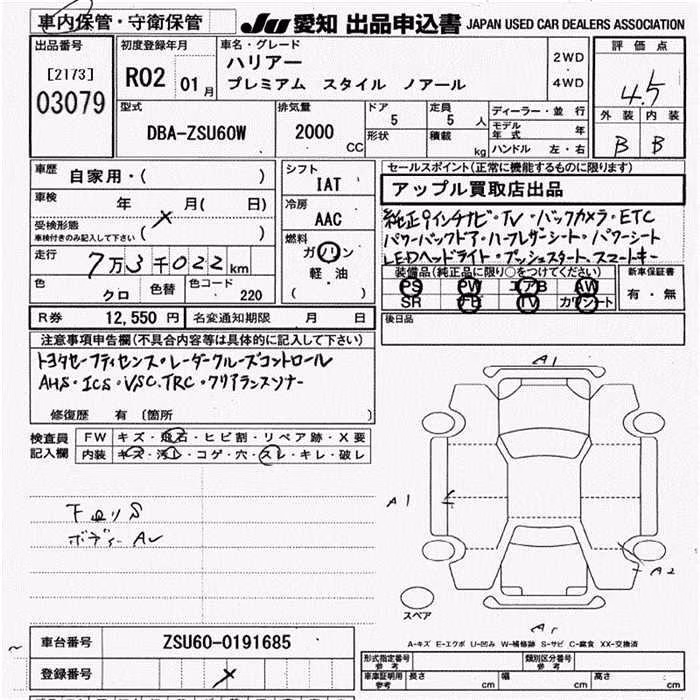 車内保管・守衛保管
JU 愛知 出品申込書 JAPAN USED CAR DEALERS ASSOCIATION
出品番号
[2173]
03079
初度登録年月
R02 01月
車名・グレード
ハリアー
プレミアム スタイル ノアール
2WD
・
4WD
評価点
4.5
外装 内装
B B
型式
DBA-ZSU60W
排気量
2000
CC
ドア
5
形状
定員
5人
積載
kg
ディーラー・並行
モデル年式 年
ハンドル 左・右
車歴
自家用・( )
車検
年 月( 日)
受検形態
車検付きのみ記入して下さい ( )
走行
7万3千022km
色
クロ
色替
色コード
220
シフト
IAT
冷房
AAC
燃料
ガソリン
軽・油
( )
セールスポイント(正常に機能するものに限ります)
アップル買取店出品
純正9インチナビ・TV・バックカメラ・ETC
パワーバックドア・ハーフレザーシート・パワーシート
LEDヘッドライト・プッシュスタート・スマートキー
装備品(純正品に限り○をつけてください)
PS PW エアB AW
SR TV カワシート
新車保証書
有・無
後日品
R券 12,550 円 名変通知期限 月 日
注意事項申告欄(不具合内容等は具体的に記入して下さい)
トヨタセーフティセンス・レーダークルーズコントロール
AHS・ICS・VSC.TRC・クリアランスソナー
修復歴 有 〔箇所 〕
検査員
記入欄
FW キズ・飛石・ヒビ割・リペア跡・X要
内装 キズ・汚レ・コゲ・穴・スレ・キレ・破レ
下回りS
ボディー
A1
A1
A2
スペア
A-キズ E-エクボ U-凹み W-補修跡 S-サビ C-腐食 XX-交換済
車台番号 ZSU60-0191685
登録番号
形式指定番号
参考
類別区分番号
参考
車庫証明用
参考
長さ cm 幅 cm 高さ cm